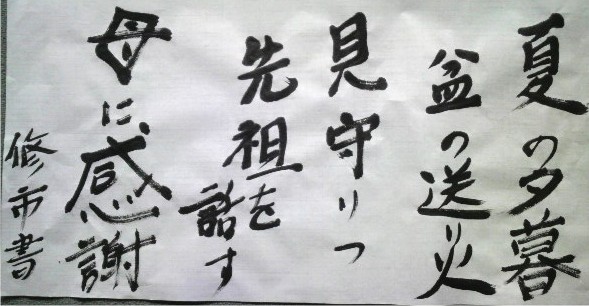 夏の夕暮
盆の送り火
見守りつ
先祖を
話す
母に感謝
修市書